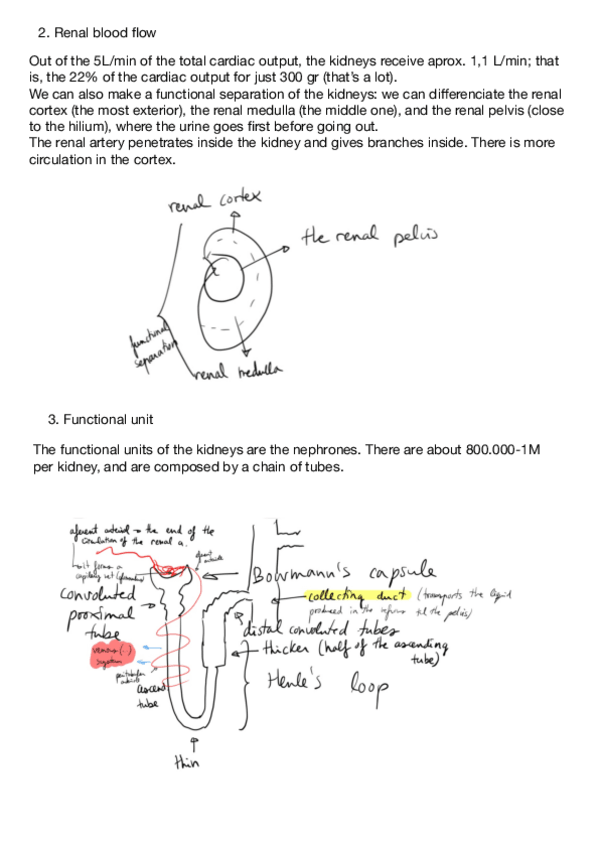 2. Renal blood flow
Out of the 5L/min of the total cardiac output, the kidneys receive aprox. 1,1 L/min; that
is, the 22% of the cardiac output for just 300 gr (that's a lot).
We can also make a functional separation of the kidneys: we can differenciate the renal
cortex (the most exterior), the renal medulla (the middle one), and the renal pelvis (close
to the hilium), where the urine goes first before going out.
The renal artery penetrates inside the kidney and gives branches inside. There is more
circulation in the cortex.
renal cortex
the renal pelvis
functional
separation
renal medulla
3. Functional unit
The functional units of the kidneys are the nephrones. There are about 800.000-1M
per kidney, and are composed by a chain of tubes.
aferent arteriol → the end of the
circulation of the renal a.
it forms a
capilary net
Bowmann's capsule
convoluted
proximal
tube
collecting duct (transports the liquid
produced in the nefrons til the pelvis)
distal convoluted tubes
thicker (half of the ascending
tube)
venous (.)
system
peritubular
Henle's loop
tube
thin